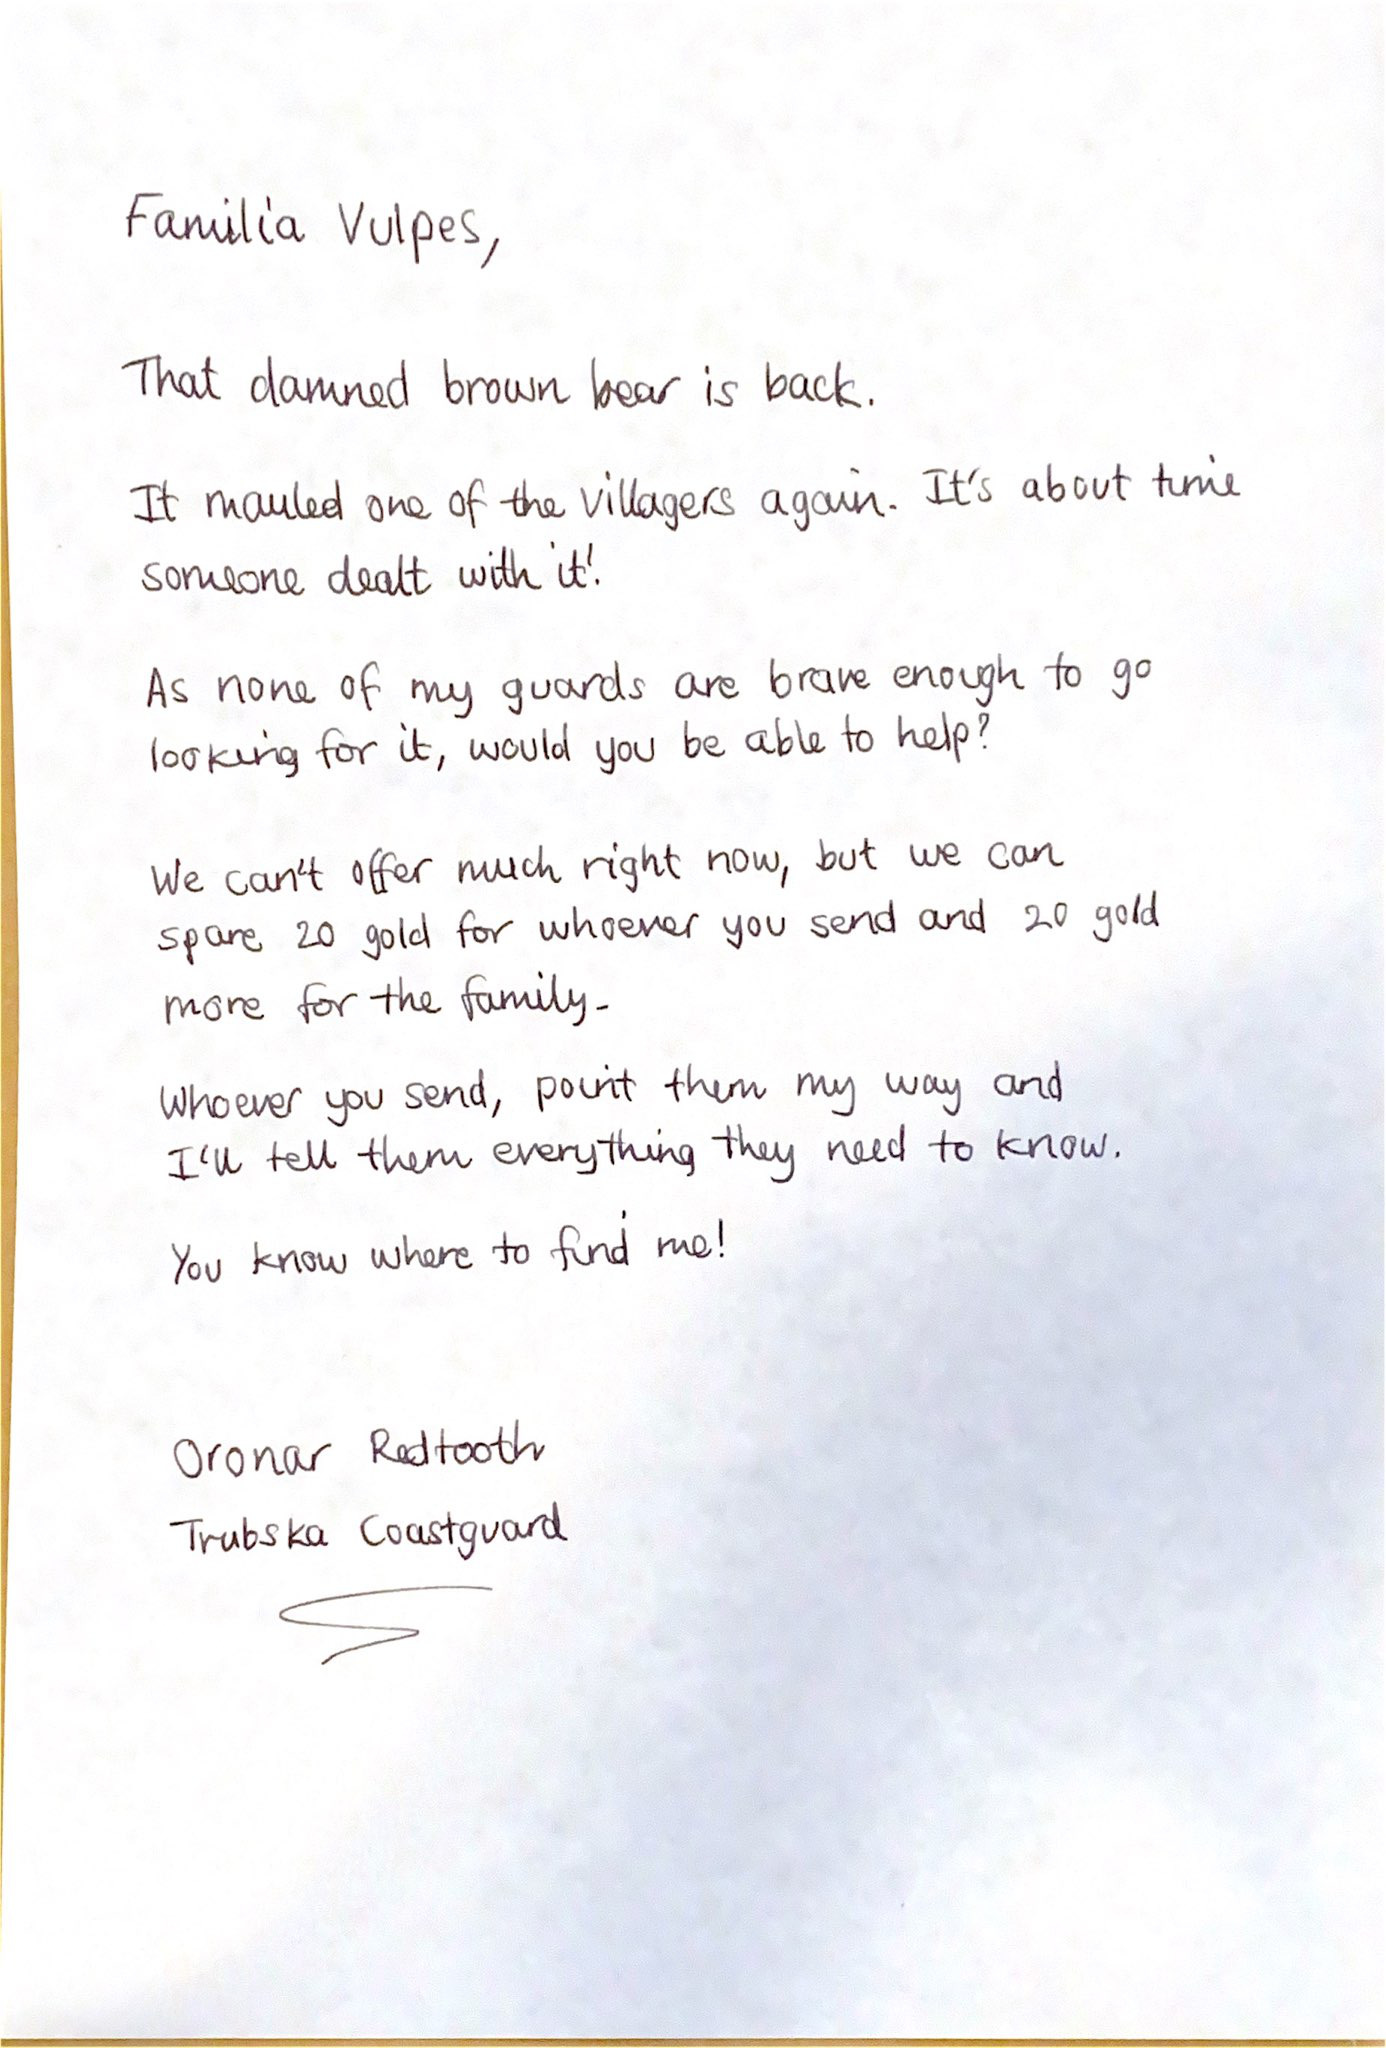 Familia Vulpes,
That damned brown bear is back.
It mauled one of the villagers again. It's about time
someone dealt with it!
As none of my guards are brave enough to go
looking for it, would you be able to help?
We can't offer much right now, but we can
spare 20 gold for whoever you send and 20 gold
more for the family.
Whoever you send, point them my way and
I'll tell them everything they need to know.
You know where to find me!
Oronar Redtooth
Trubska Coastguard